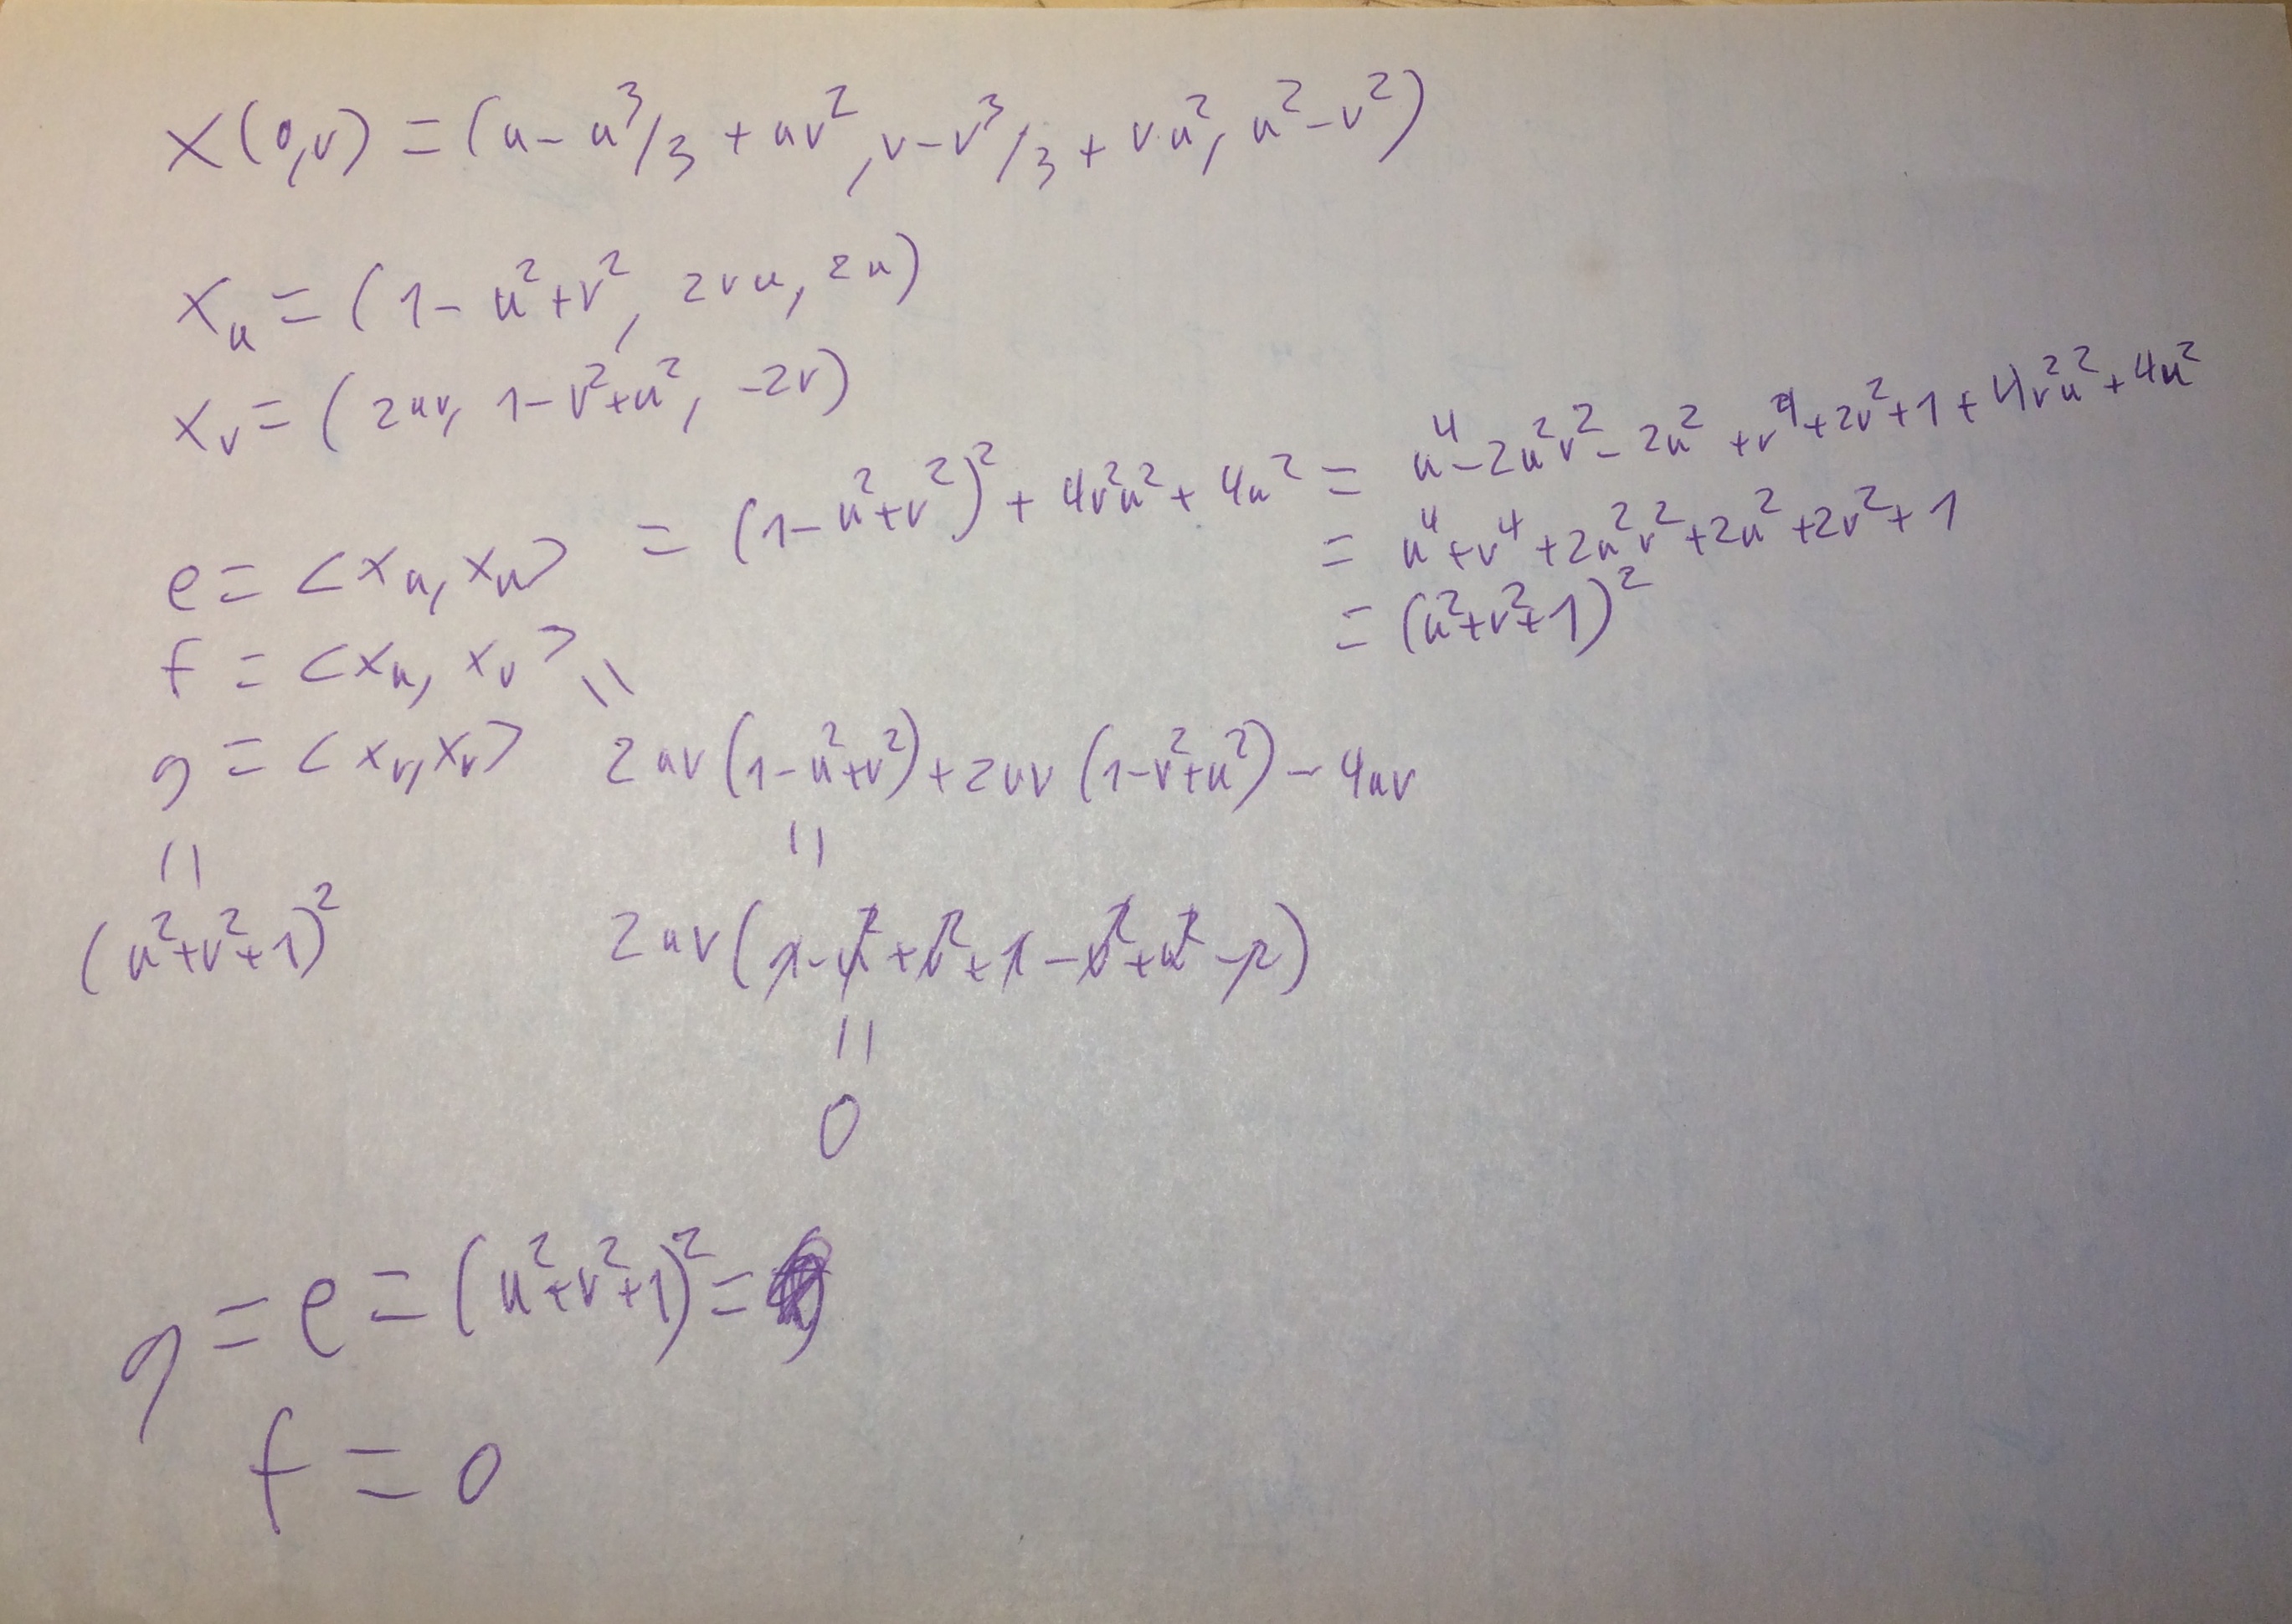 x(0,v) = (u - u³/3 + uv², v - v³/3 + vu², u² - v²)
x_u = (1 - u² + v², 2vu, 2u)
x_v = (2uv, 1 - v² + u², -2v)
e = <x_u, x_u> = (1 - u² + v²)² + 4v²u² + 4u² = u⁴ - 2u²v² - 2u² + v⁴ + 2v² + 1 + 4v²u² + 4u²
= u⁴ + v⁴ + 2u²v² + 2u² + 2v² + 1
= (u² + v² + 1)²
f = <x_u, x_v> =
2uv(1 - u² + v²) + 2uv(1 - v² + u²) - 4uv
=
2uv(1 - u² + v² + 1 - v² + u² - 2)
=
0
g = <x_v, x_v>
=
(u² + v² + 1)²
g = e = (u² + v² + 1)² =
f = 0